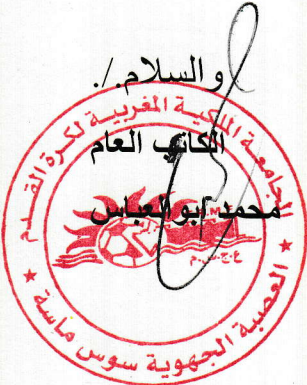 و السلام./.
الكاتب العام
محمد أبو العباس
الجامعة الملكية المغربية لكرة القدم
ع.ج.س.م
العصبة الجهوية سوس ماسة